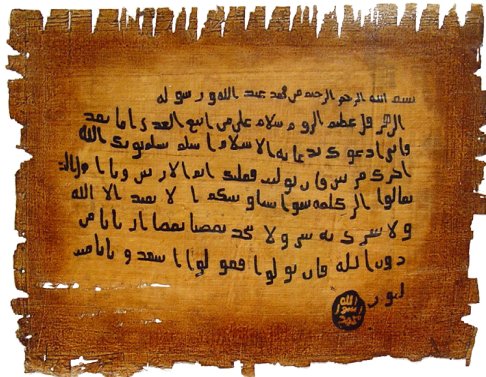 بسم الله الرحمن الرحيم من محمد عبد الله ورسوله
الى هرقل عظيم الروم سلام على من اتبع الهدى اما بعد
فاني ادعوك بدعاية الاسلام اسلم تسلم يوتك الله
اجرك مرتين فان توليت فعليك اثم الاريسين ويا اهل
تعالوا الى كلمة سوا بيننا وبينكم ا لا نعبد الا الله
ولا نشرك به شيا ولا يتخذ بعضنا بعضا اربابا من
دون الله فان تولوا فقولوا اشهدوا بانا مس
لمون
الله
رسول
محمد